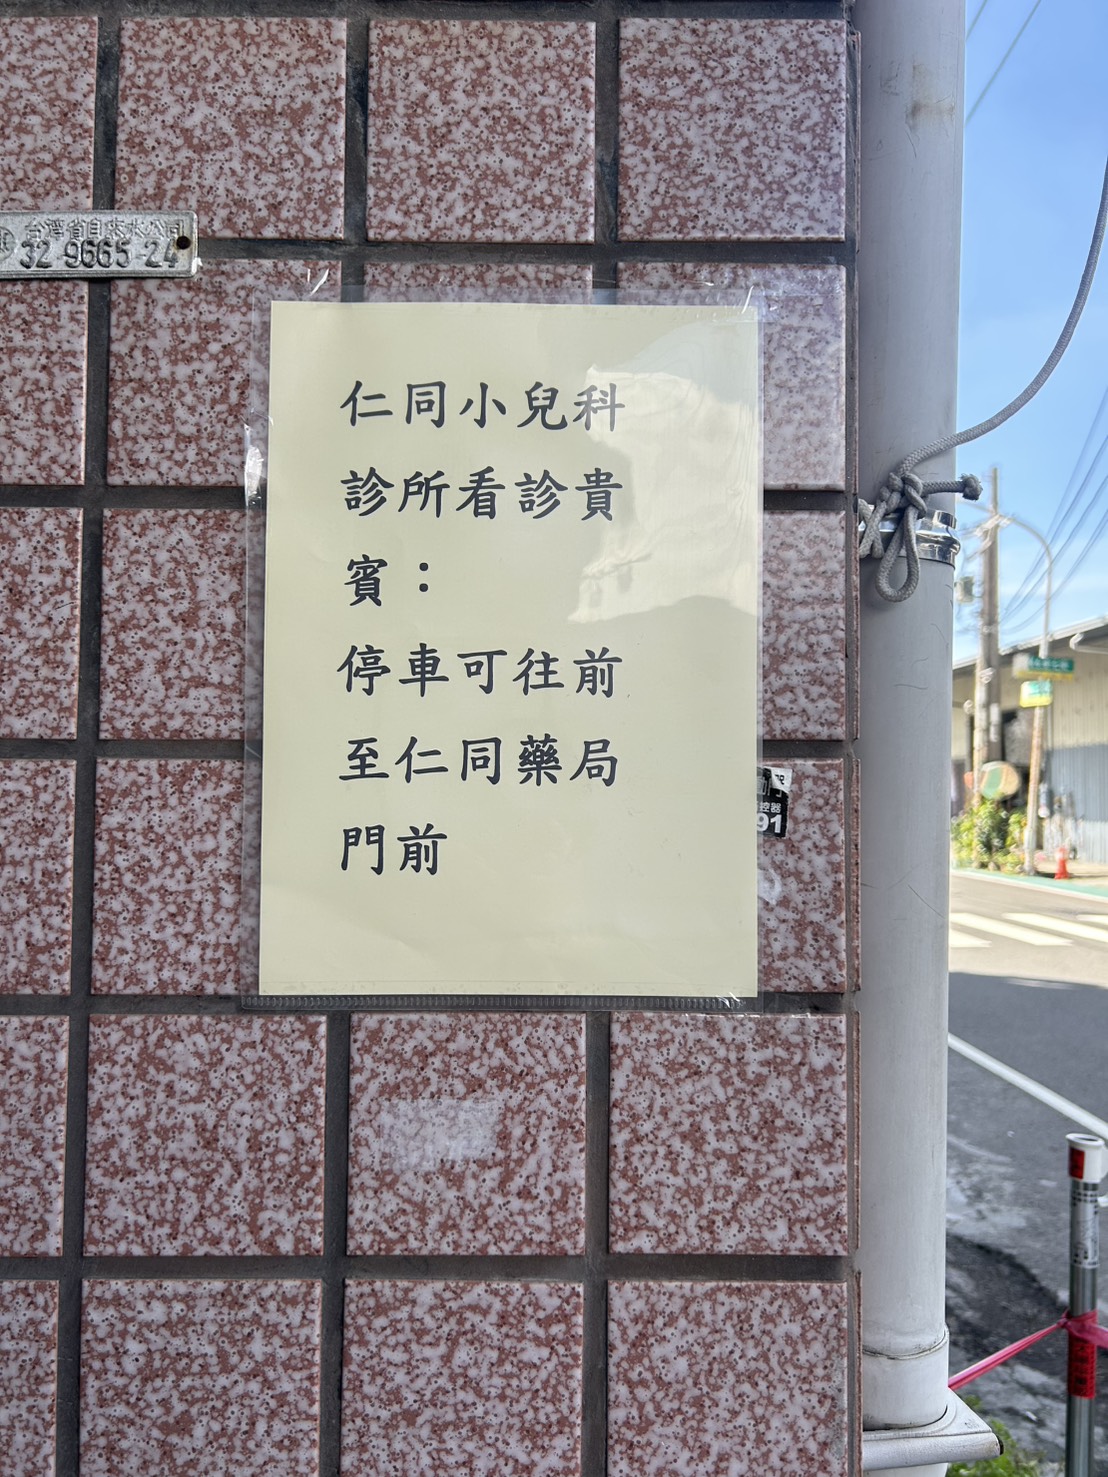 台灣省自來水公司
32 9665-24
仁同小兒科
診所看診貴
賓：
停車可往前
至仁同藥局
門前
控器
91